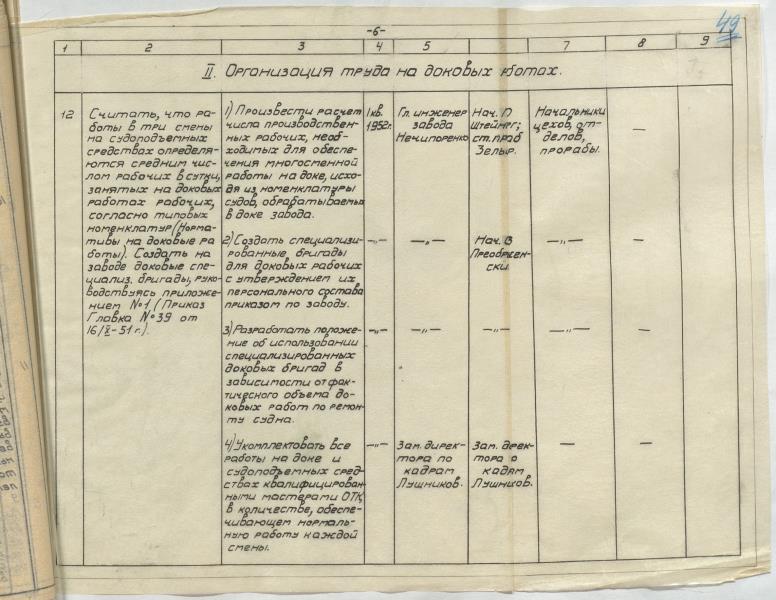 -6-
49
1 2 3 4 5 7 8 9
II. Организация труда на доковых ротах.
12
Считать, что ра-
боты в три смены
на судоподъемных
средствах определя-
ются средним чис-
лом рабочих в сутки,
занятых на доковых
работах рабочих,
согласно типовых
номенклатур (Норма-
тивы на доковые ра
боты). Создать на
заводе доковые спе-
циализ. бригады, руко-
водствуясь приложе-
нием №1 (Приказ
Главка №39 от
16/X-51г.).
1) Произвести расчет
числа производствен-
ных рабочих, необ-
ходимых для обеспе-
чения многосменной
работы на доке, исхо-
дя из номенклатуры
судов, обрабатываемых
в доке завода.
1 кв.
1952г.
Гл. инженер
завода
Нечипоренко
Нач. П
Штейнг;
ст. праб
Зельр.
Начальники
цехов, от-
делов,
прорабы.
—
2) Создать специализи-
рованные бригады
для доковых рабочих
с утверждением их
персонального состава
приказом по заводу.
—"—
—"—
Нач. О
Преображен-
ски
—"—
—
3) Разработать положе-
ние об использовании
специализированных
доковых бригад в
зависимости от фак-
тического объема до-
ковых работ по ремон-
ту судна.
—"—
—"—
—"—
—"—
—
4) Укомплектовать все
работы на доке и
судоподъемных сред-
ствах квалифицирован-
ными мастерами ОТК
в количестве, обеспе-
чивающем нормаль-
ную работу каждой
смены.
—"—
Зам. дирек-
тора по
кадрам
Лушников.
Зам. дрек-
тора о
кадям
Лушнков.
—
—